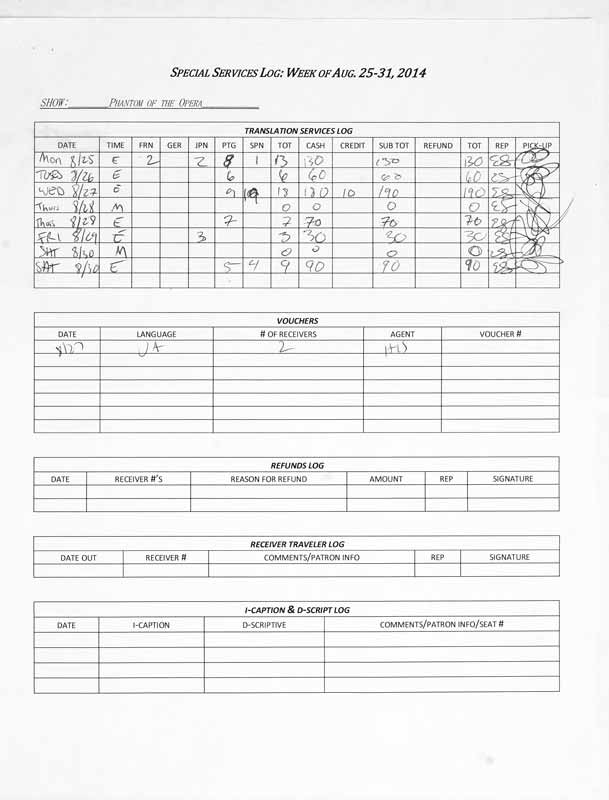 SPECIAL SERVICES LOG: WEEK OF AUG. 25-31, 2014
SHOW: PHANTOM OF THE OPERA
TRANSLATION SERVICES LOG
DATE TIME FRN GER JPN PTG SPN TOT CASH CREDIT SUB TOT REFUND TOT REP PICK-UP
Mon 8/25 E 2 2 8 1 13 130 130 130 ES
TUES 8/26 E 6 6 60 60 60 ES
WED 8/27 E 9 18 180 10 190 190 ES
Thurs 8/28 M 0 0 0 0 ES
Thurs 8/28 E 7 7 70 70 70 ES
FRI 8/29 E 3 3 30 30 30 ES
SAT 8/30 M 0 0 0 0 ES
SAT 8/30 E 5 4 9 90 90 90 ES
VOUCHERS
DATE LANGUAGE # OF RECEIVERS AGENT VOUCHER #
8/27 JA 2 HIS
REFUNDS LOG
DATE RECEIVER #'S REASON FOR REFUND AMOUNT REP SIGNATURE
RECEIVER TRAVELER LOG
DATE OUT RECEIVER # COMMENTS/PATRON INFO REP SIGNATURE
I-CAPTION & D-SCRIPT LOG
DATE I-CAPTION D-SCRIPTIVE COMMENTS/PATRON INFO/SEAT #